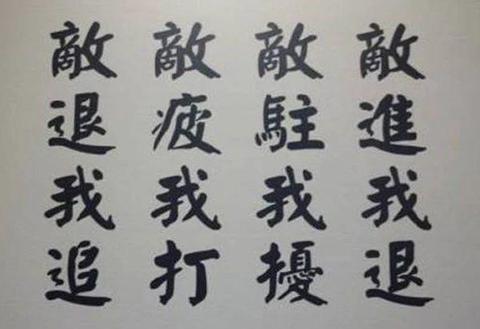 敵進我退
敵駐我擾
敵疲我打
敵退我追